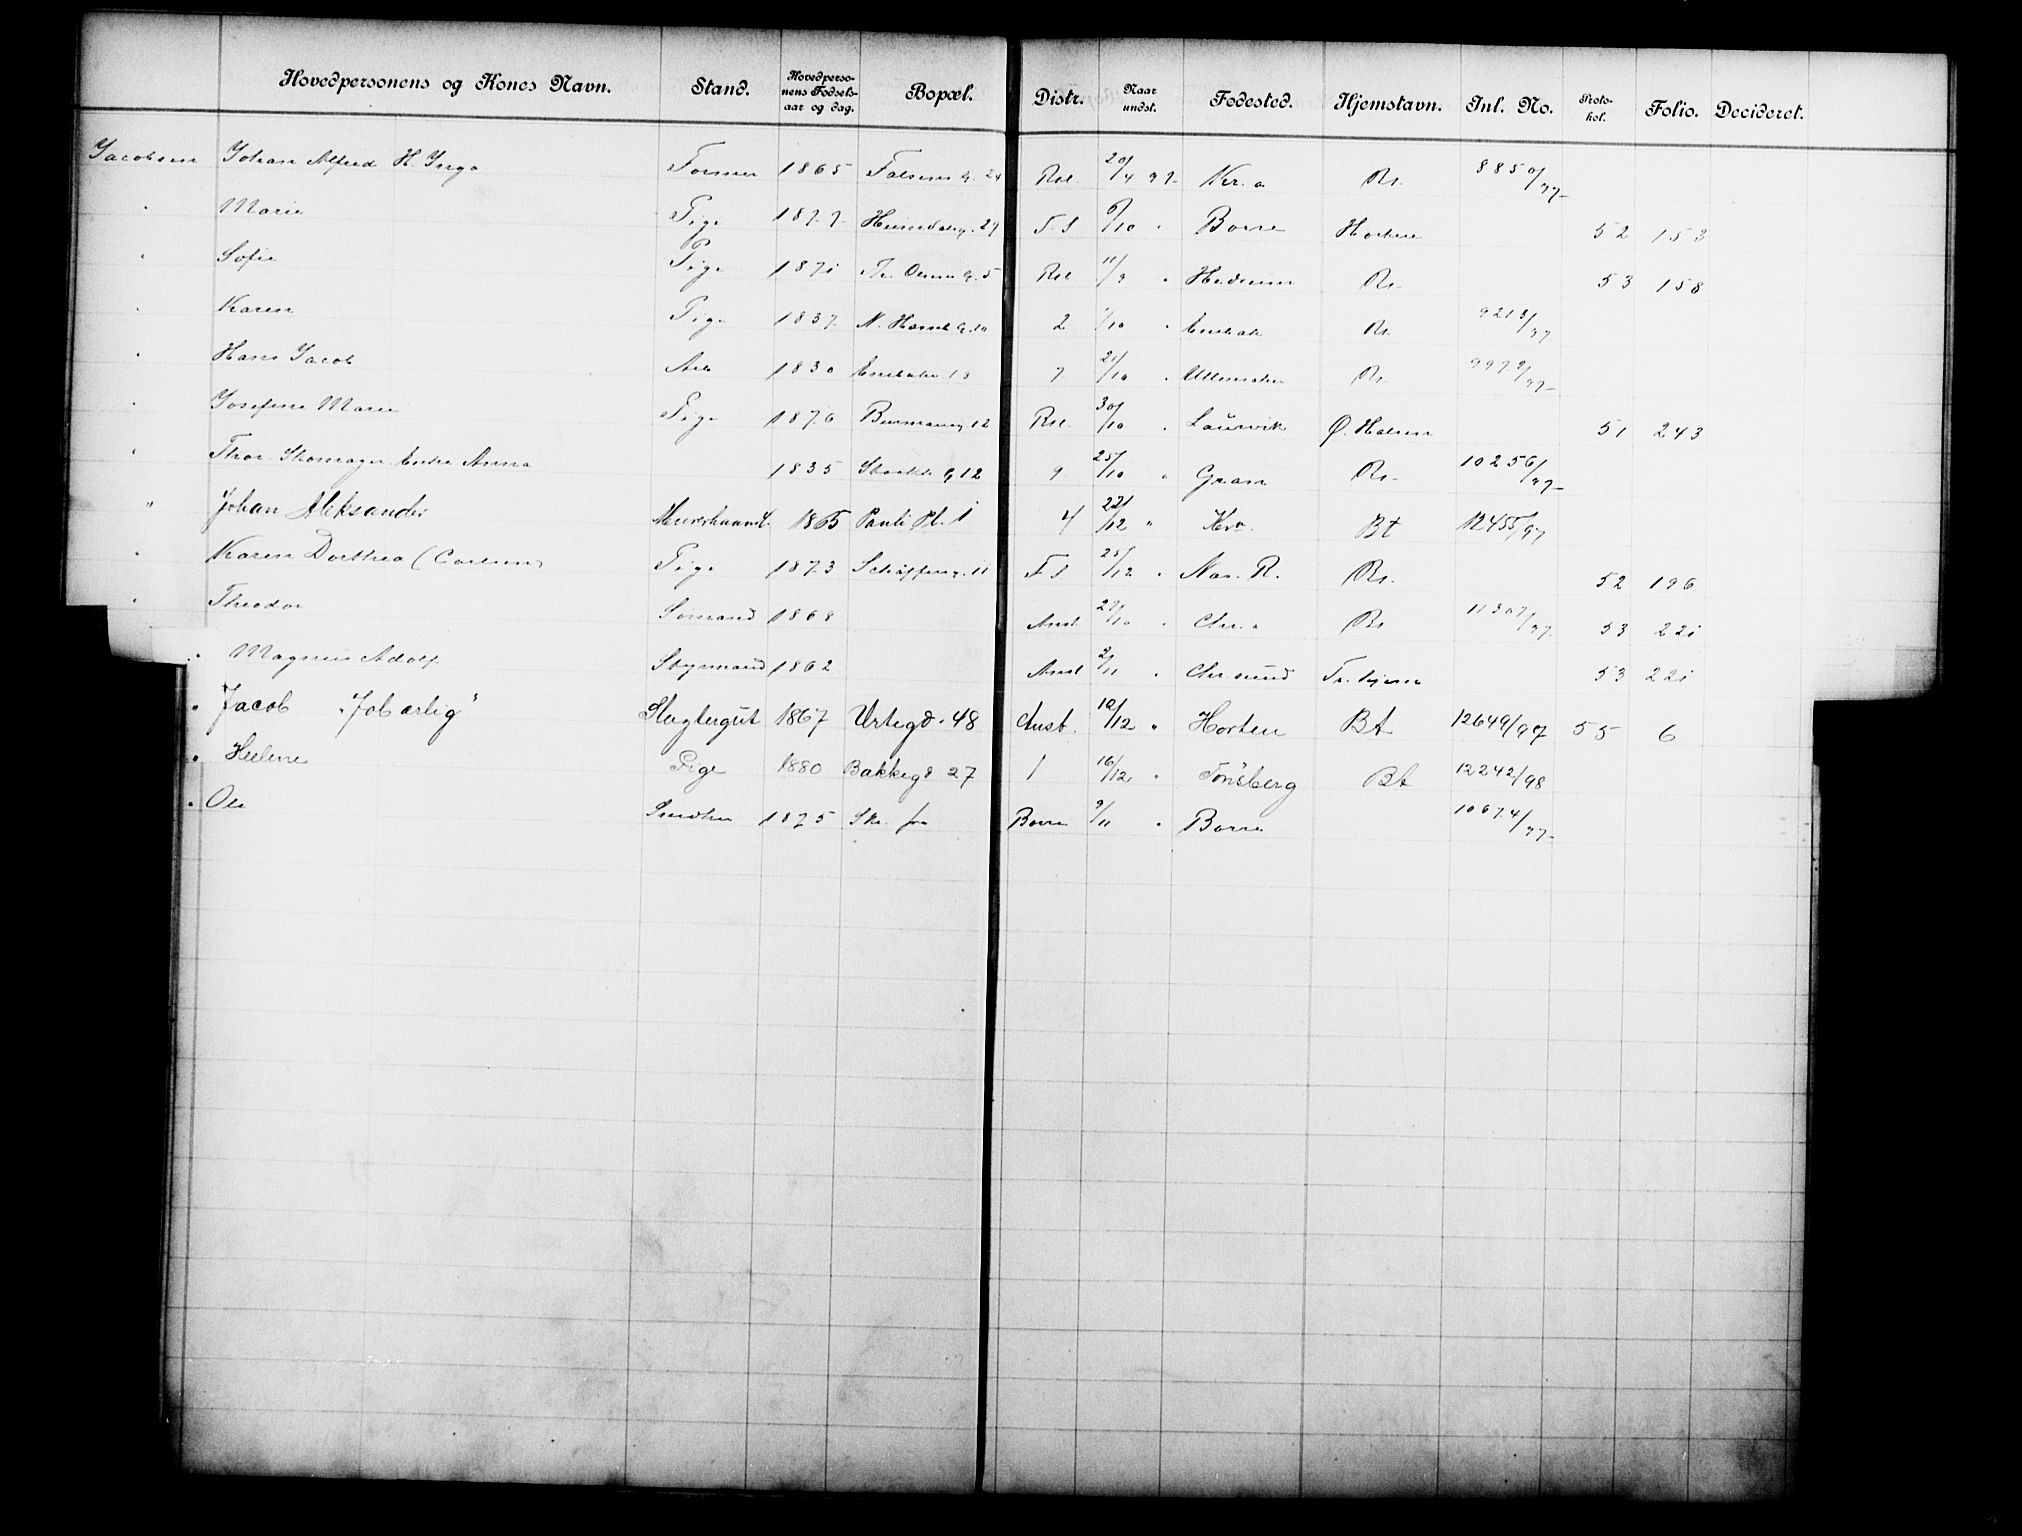 Hovedpersonens og Kones Navn. Stand. Hovedperso-nens Fødsels-aar og dag. Bopæl. Distr. Naar undst. Fødested. Hjemstavn. Inl. No. Proto-kol. Folio. Decideret.
Jacobsen Johan Alfred H. Inga Former 1865 Falsens G. 24 Rst. 20/4 97 Kr.a Br. 8850/97
" Marie Pige 1877 Heimdalsg. 27 F.S 6/10 " Borre Horten 52 153
" Sofie Pige 1871 Th. Olsens G. 5 Rst 11/9 " Hedrum Br. 53 158
" Karen Pige 1837 N. G. 10 2 /10 " Enebak Br. 9213/97
" Hans Jacob Arb 1830 13 7 21/10 " Ullensaker Br. 9979/97
" Josefine Marie Pige 1876 12 Rst. 30/10 " Laurvik Ø. Halsen 51 243
" Thor. Skomager Enke Anna 1835 G 12 9 25/10 " Gran Br. 10256/97
" Johan Aleksander Murerhaandl. 1865 Pauls Pl. 1 4 22/12 " Kra. Bt 12455/97
" Karen Dorthea (Carlsen) Pige 1873 Schäffersg. 11 F.S 25/12 " Nas. R. Br. 52 196
" Theodor Sømand 1868 Anst. 27/10 " Chr.a Br 11307/97 53 221
" Magnus Adolf Styrmand 1862 Anst 2/11 " Chr.sund Tr.hjem 53 221
" Jacob "Jobærlig" Slagtergut 1867 Urtegd. 48 Anst. 10/12 " Horten Bt 12649/97 55 6
" Helene Pige 1880 Bakkegd 27 1 16/12 " Tønsberg Bt 12242/98
" Ole 1875 Skr. fra Borre 9/11 " Borre 10674/97